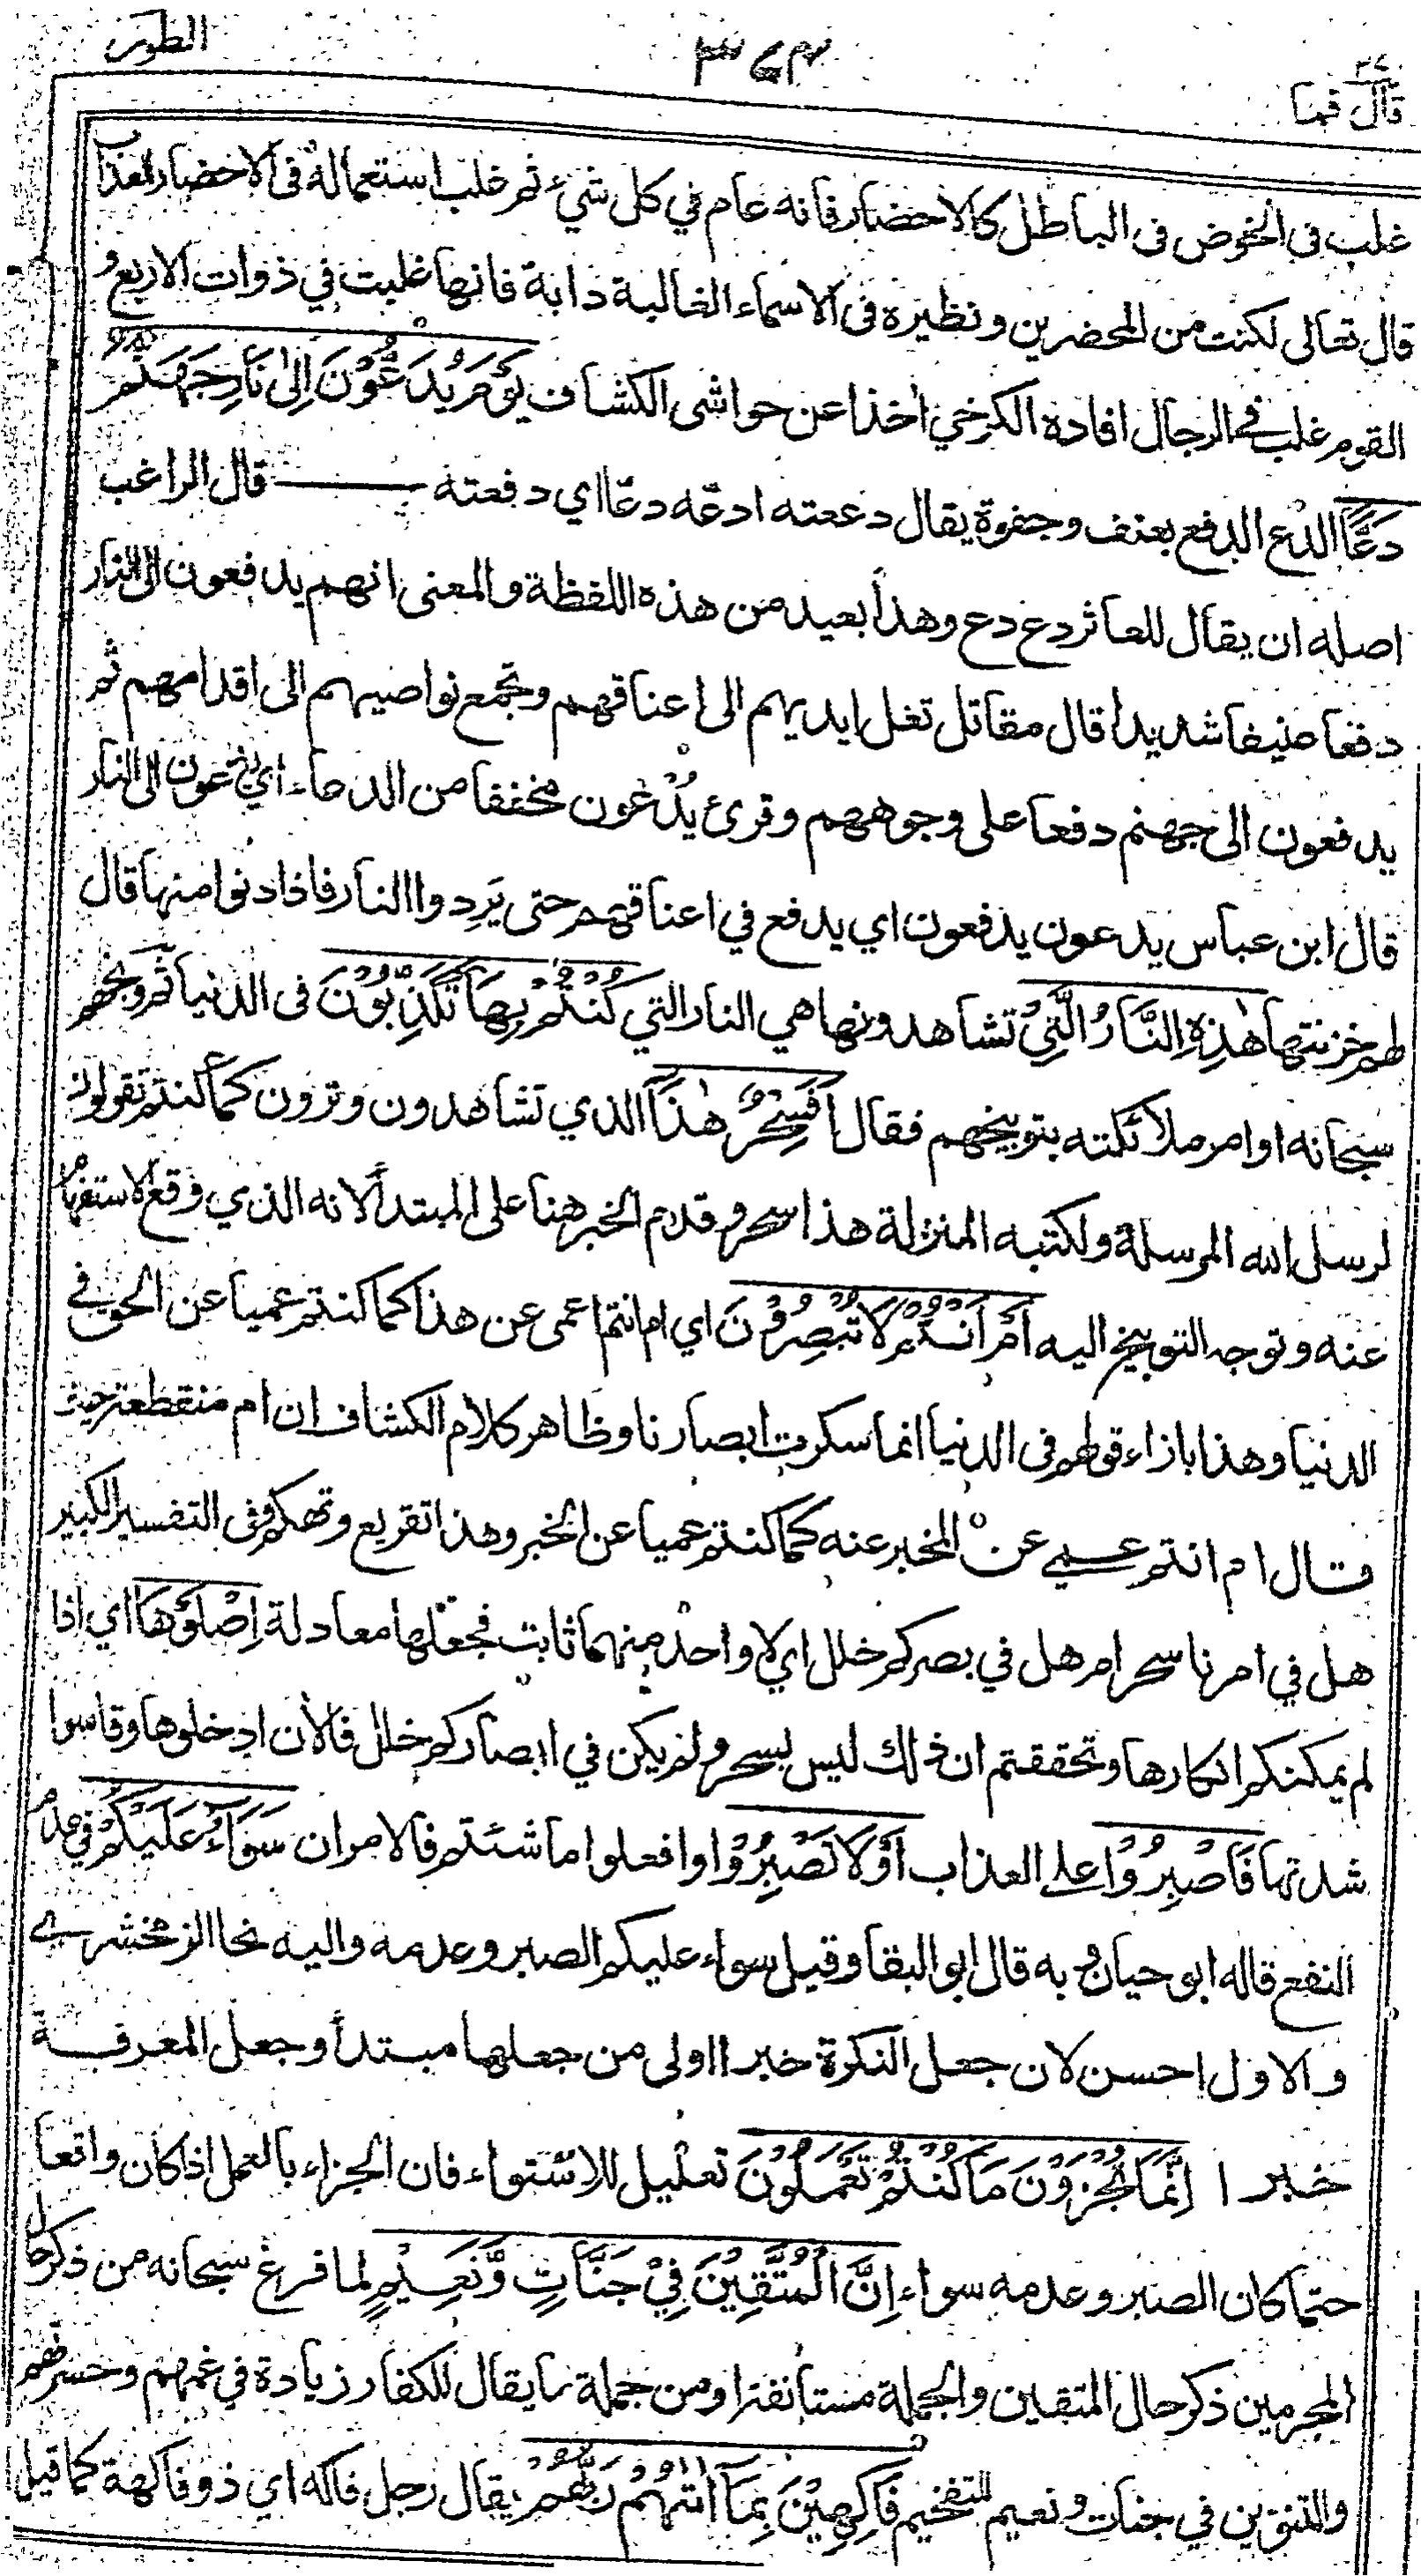 الطور
٣٧٣
قال فما
٢٧
غلب في الخوض في الباطل كالاحضار فانه عام في كل شيء ثم غلب استعماله في الاحضار للعذاب
قال تعالى لكنت من المحضرين ونظيره في الاسماء الغالبة دابة فانها غلبت في ذوات الاربع و
القوم غلب في الرجال افاده الكرخي اخذا عن حواشي الكشاف يَوْمَ يُدَعُّوْنَ اِلٰى نَارِ جَهَنَّمَ
دَعًّا الدع الدفع بعنف وجفوة يقال دععته ادعّه دعّا اي دفعته قال الراغب
اصله ان يقال للعاثر دع دع وهذا بعيد من هذه اللفظة والمعنى انهم يدفعون الى النار
دفعا عنيفا شديدا قال مقاتل تغل ايديهم الى اعناقهم وتجمع نواصيهم الى اقدامهم ثم
يدفعون الى جهنم دفعا على وجوههم وقرئ يُدْعَون مخففا من الدعاء اي يدعون الى النار
قال ابن عباس يدعون يدفعون اي يدفع في اعناقهم حتى يَرِدوا النار فاذا دنوا منها قال
لهم خزنتها هٰذِهِ النَّارُ الَّتِيْ تشاهدونها هي النار التي كُنْتُمْ بِهَا تُكَذِّبُوْنَ في الدنيا ثم وبخهم
سبحانه او امر ملائكته بتوبيخهم فقال اَفَسِحْرٌ هٰذَا الذي تشاهدون وترون كما كنتم تقولون
لرسل الله المرسلة ولكتبه المنزلة هذا سحر وقدم الخبر هنا على المبتدأ لانه الذي وقع الاستفهام
عنه وتوجه التوبيخ اليه اَمْ اَنْتُمْ لَا تُبْصِرُوْنَ اي ام انتم اعمى عن هذا كما كنتم عميا عن الحق في
الدنيا وهذا بازاء قولهم في الدنيا انما سكرت ابصارنا وظاهر كلام الكشاف ان ام منقطعة حيث
قال ام انتم عمي عن المخبر عنه كما كنتم عميا عن الخبر وهذا تقريع وتهكم وفي التفسير الكبير
هل في امرنا سحر ام هل في بصركم خلل اي لا واحد منهما ثابت فجعلها معادلة اِصْلَوْهَا اي اذا
لم يمكنكم انكارها وتحققتم ان ذلك ليس بسحر ولم يكن في ابصاركم خلل فالآن ادخلوها وقاسوا
شدتها فَاصْبِرُوْا على العذاب اَوْ لَا تَصْبِرُوْا وافعلوا ما شئتم فالامران سَوَآءٌ عَلَيْكُمْ في عدم
النفع قاله ابو حيان وبه قال ابو البقا وقيل سواء عليكم الصبر وعدمه واليه نحا الزمخشري
والاول احسن لان جعل النكرة خبرا اولى من جعلها مبتدأ وجعل المعرفة
خبرا اِنَّمَا تُجْزَوْنَ مَا كُنْتُمْ تَعْمَلُوْنَ تعليل للاستواء فان الجزاء بالعمل اذا كان واقعا
حتما كان الصبر وعدمه سواء اِنَّ الْمُتَّقِيْنَ فِيْ جَنّٰتٍ وَّنَعِيْمٍ لما فرغ سبحانه من ذكر حال
المجرمين ذكر حال المتقين والجملة مستأنفة او من جملة ما يقال للكفار زيادة في غمهم وحسرتهم
والتنوين في جنات ونعيم للتفخيم فَاكِهِيْنَ بِمَآ اٰتٰهُمْ رَبُّهُمْ يقال رجل فاكه اي ذو فاكهة كما قيل